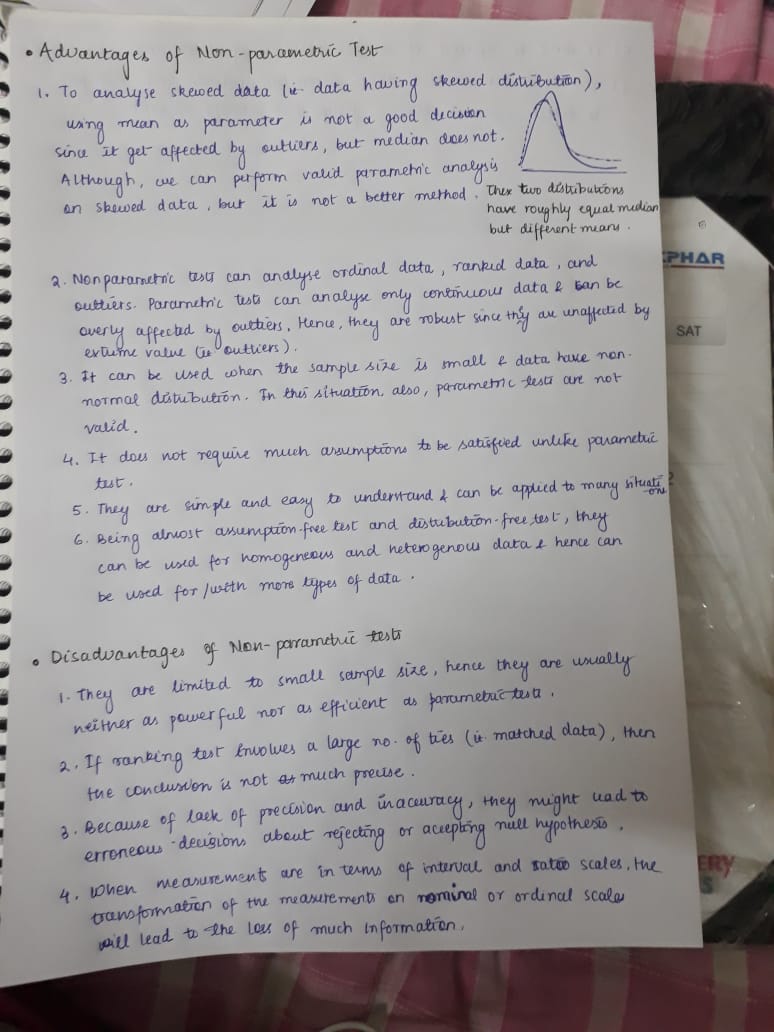 • Advantages of Non-parametric Test
1. To analyse skewed data (ie. data having skewed distribution),
using mean as parameter is not a good decision
since it get affected by outliers, but median does not.
Although, we can perform valid parametric analysis
on skewed data, but it is not a better method.
These two distributions
have roughly equal median
but different means.
2. Nonparametric tests can analyse ordinal data, ranked data, and
outliers. Parametric tests can analyse only continuous data & can be
overly affected by outliers. Hence, they are robust since they are unaffected by
extreme value (ie outliers).
3. It can be used when the sample size is small & data have non-
normal distribution. In this situation, also, parametric tests are not
valid.
4. It does not require much assumptions to be satisfied unlike parametric
test.
5. They are simple and easy to understand & can be applied to many situations
6. Being almost assumption-free test and distribution-free test, they
can be used for homogeneous and heterogenous data & hence can
be used for/with more types of data.
• Disadvantages of Non-parametric tests
1. They are limited to small sample size, hence they are usually
neither as powerful nor as efficient as parametric tests.
2. If ranking test involves a large no. of ties (ie matched data), then
the conclusion is not as much precise.
3. Because of lack of precision and inaccuracy, they might lead to
erroneous decisions about rejecting or accepting null hypothesis.
4. When measurements are in terms of interval and ratio scales, the
transformation of the measurements on nominal or ordinal scale
will lead to the loss of much information.
PHAR
SAT
ERY
S